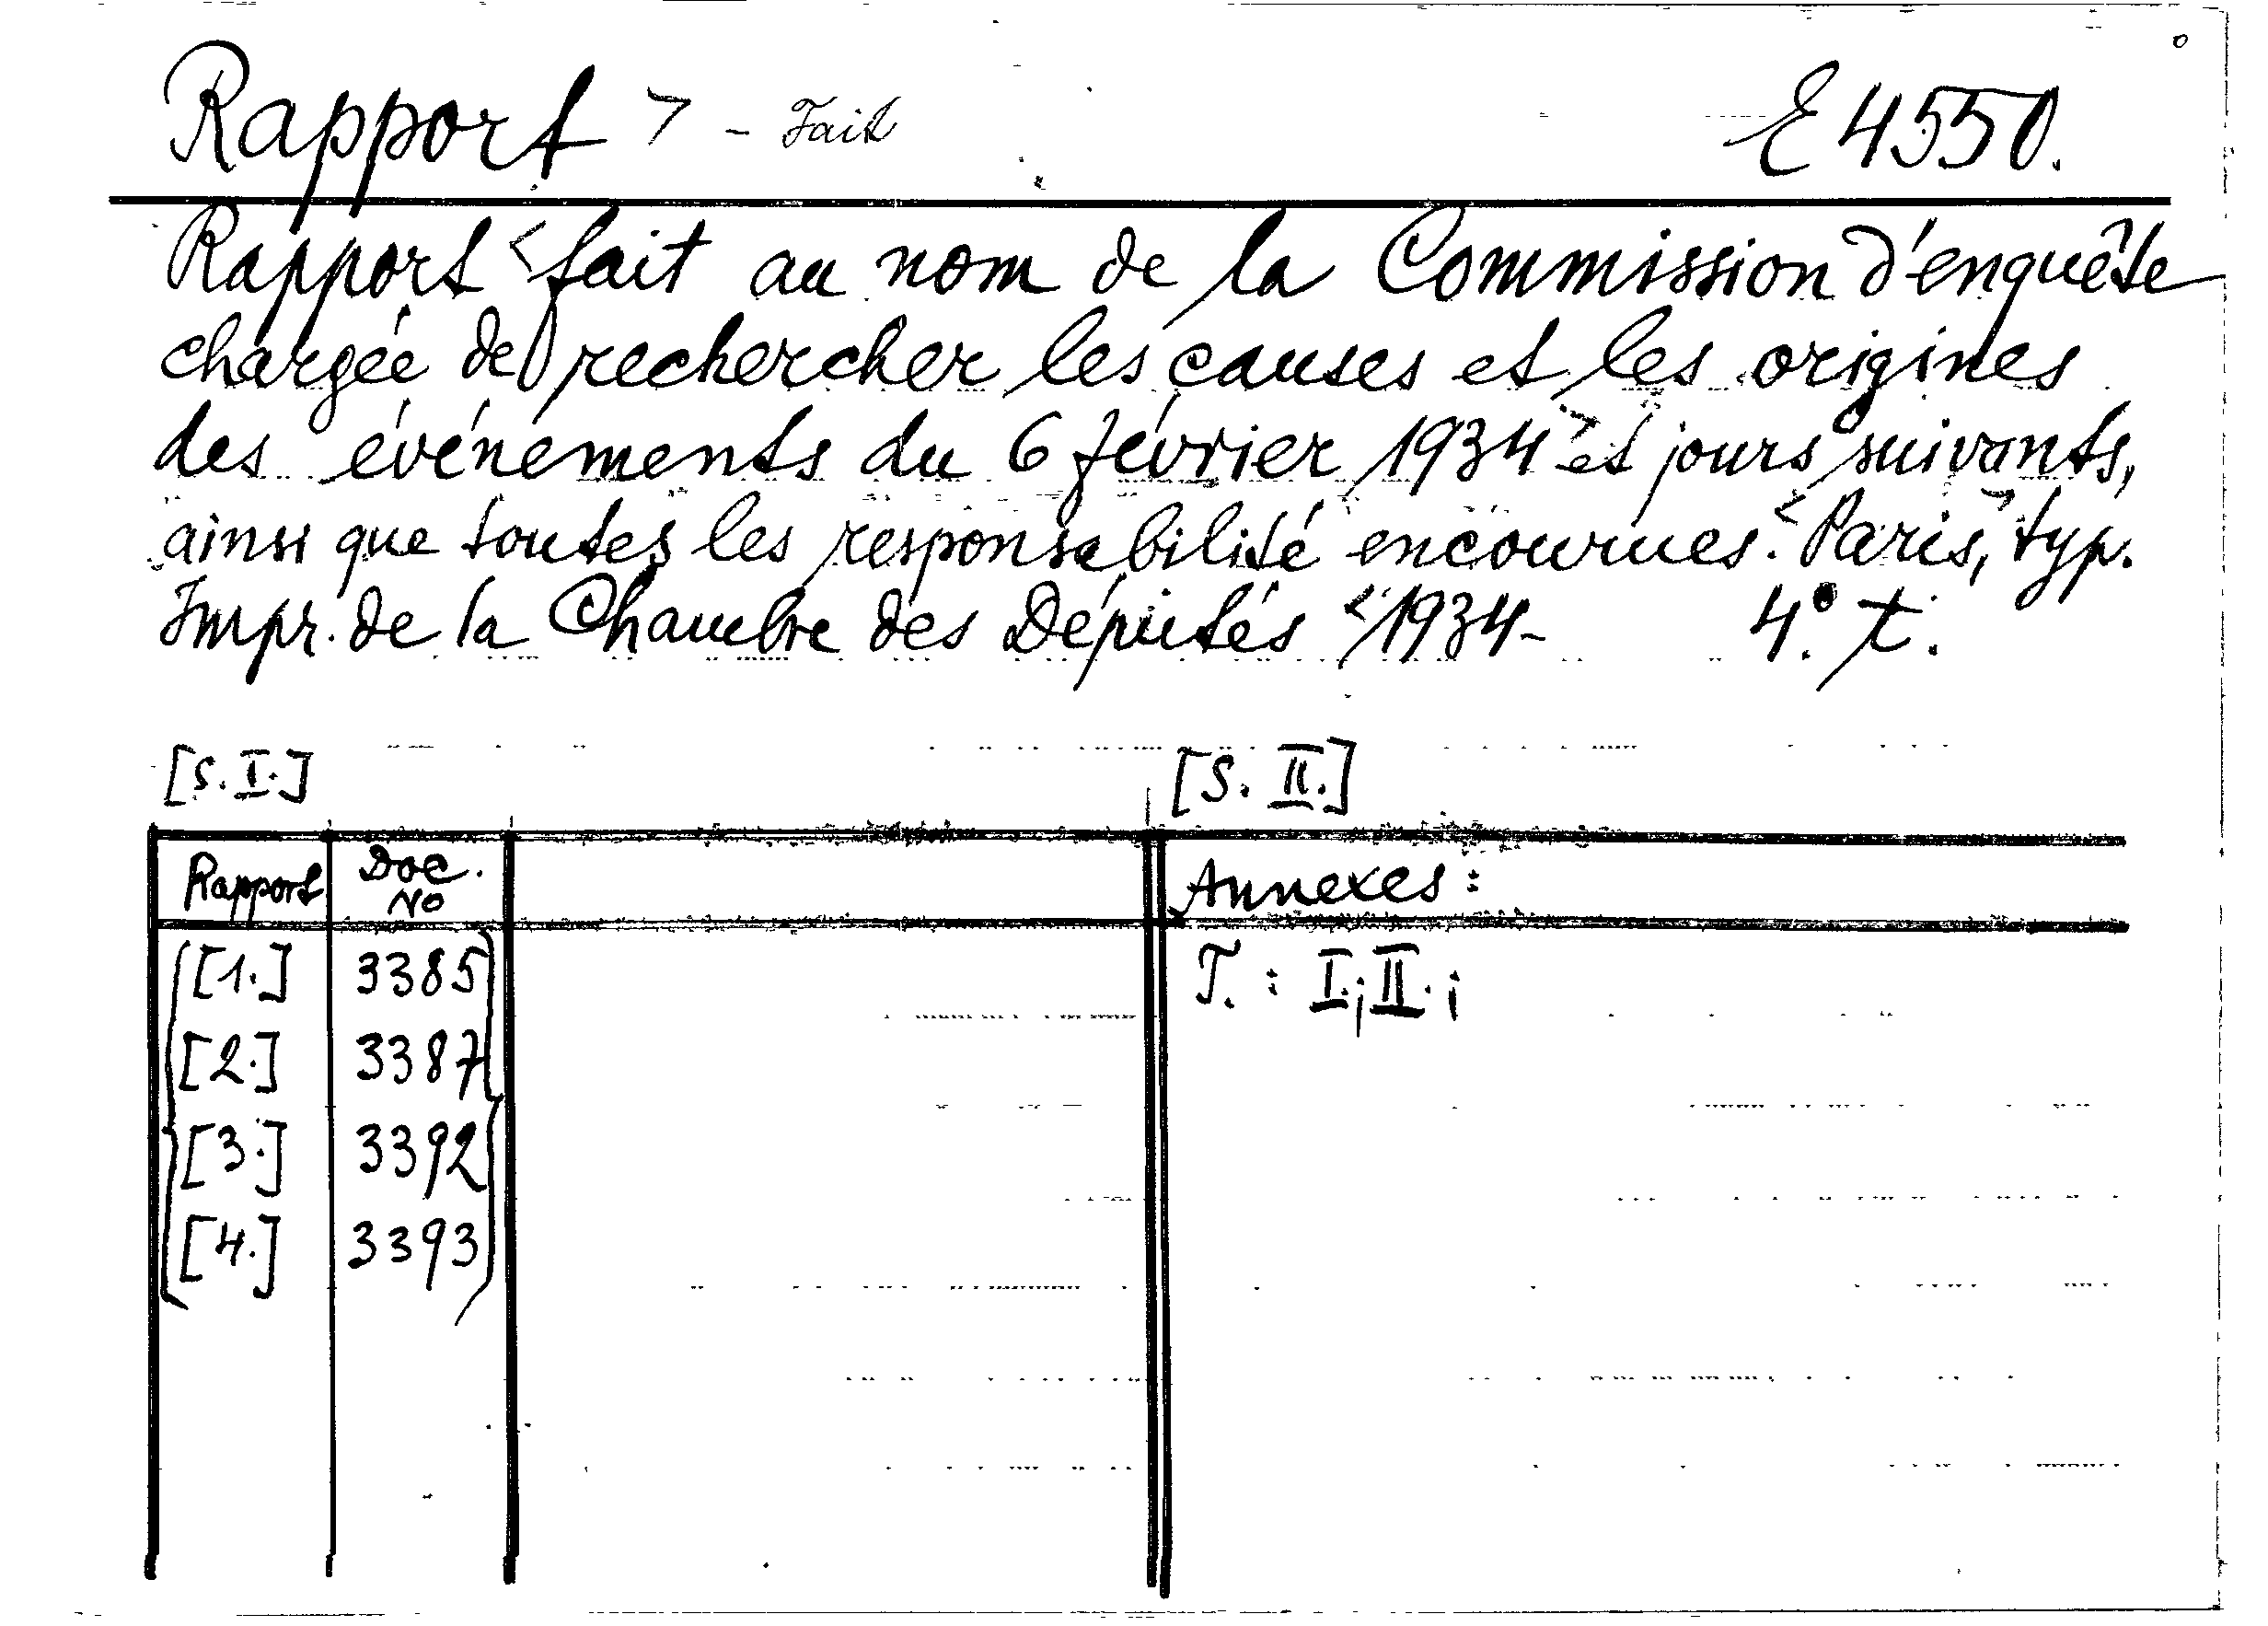 Rapport > - Fait E 4550.
Rapport < fait au nom de la Commission d'enquête
chargée de rechercher les causes et les origines
des événements du 6 février 1934 et jours suivants,
ainsi que toutes les responsabilité encourues. < Paris, > typ.
Impr. de la Chambre des Députés < 1934- 4° t.
[S. I.] [S. II.]
Rapport Doc. No Annexes :
[1.] 3385 T. : I.; II. ;
[2.] 3387
[3.] 3392
[4.] 3393